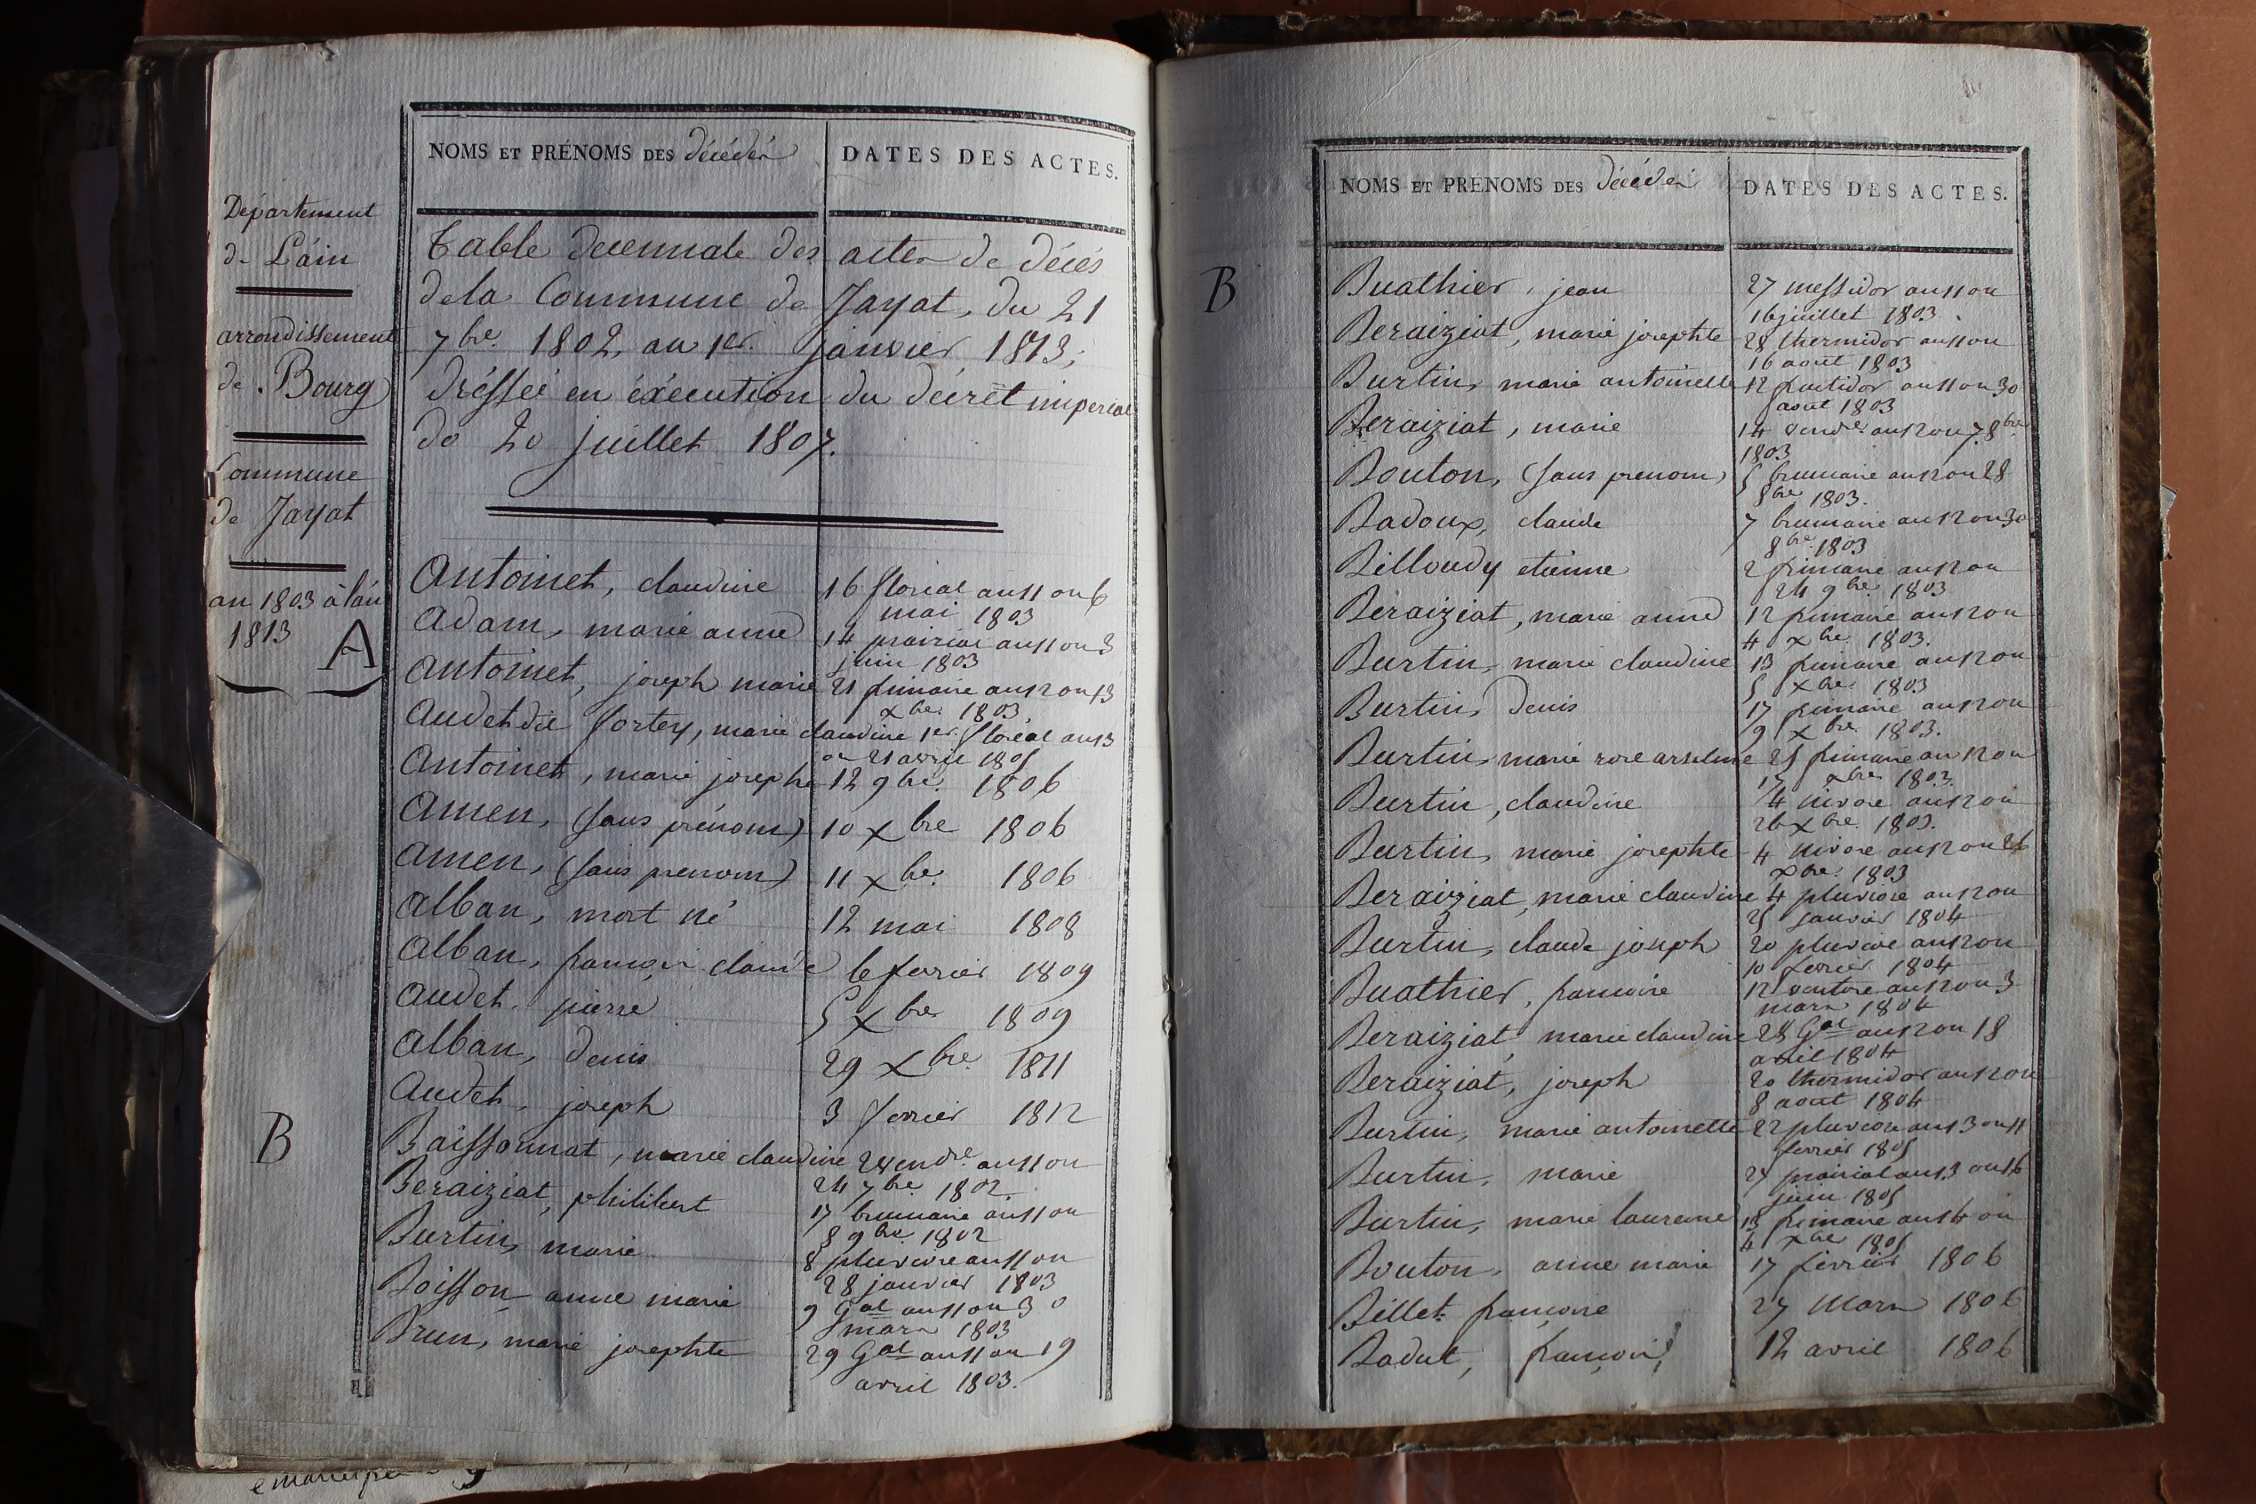 Département
de L'áin
arrondissement
de Bourg
Commune
de Jayat
an 1803 à l'an
1813
A
B
NOMS ET PRÉNOMS DES décédés
DATES DES ACTES.
Table decennale des actes de décés
de la Commune de Jayat, du 21
7bre. 1802, au 1er. janvier 1813;
dréssée en éxécution du décrèt imperial
do 20 juillet 1807.
Antoinet, claudine 16 floréal an 11 ou 6
mai 1803
Adam, marie anne 14 prairial an 11 ou 3
juin 1803
Antoinet, joseph marie 21 frimaire an 12 ou 13
xbre. 1803
Audet dit fortey, marie claudine 1er. floréal an 13
ou 21 avril 1805
Antoinet, marie josephe 12 9bre. 1806
Amen, (sans prénom) 10 xbre 1806
Amen, (sans prenom) 11 xbre. 1806
Alban, mort né 12 mai 1808
Alban, françois claude 6 fevrier 1809
Audet, pierre 5 xbre 1809
Alban, denis 29 xbre. 1811
Audet, joseph 3 fevrier 1812
Baissonnat, marie claudine 2 vendre. an 11 ou
24 7bre. 1802
Beraiziat, philibert 17 brumaire an 11 ou
8 9bre 1802
Burtin, marie 8 pluviose an 11 ou
28 janvier 1803
Boisson anne marie 9 Gal an 11 ou 30
mars 1803
Brun, marie josephte 29 Gal an 11 ou 19
avril 1803.
NOMS ET PRÉNOMS DES décédés
DATES DES ACTES.
B
Buathier, jean 27 messidor an 11 ou
16 juillet 1803.
Beraiziat, marie josephte 28 thermidor an 11 ou
16 aout 1803
Burtin, marie antoinette 12 fructidor an 11 ou 30
aout 1803
Beraiziat, marie 14 vendre. an 12 ou 7 8bre
1803
Bouton, (sans prenom) 5 brumaire an 12 ou 28
8bre 1803.
Badoux, claude 7 brumaire an 12 ou 30
8bre. 1803
Billoudy etienne 2 frimaire an 12 ou
24 9bre. 1803
Béraiziat, marie anne 12 frimaire an 12 ou
4 xbre. 1803.
Burtin, marie claudine 13 frimaire an 12 ou
5 xbre. 1803
Burtin, denis 17 frimaire an 12 ou
9 xbre. 1803.
Burtin, marie rose arselme 25 frimaire an 12 ou
17 xbre 1803.
Burtin, claudine 4 nivose an 12 ou
26 xbre. 1803.
Burtin, marie josephte 4 nivose an 12 ou 26
xbre. 1803
Beraiziat, marie claudine 4 pluviose an 12 ou
25 janvier 1804
Burtin, claude joseph 20 pluviose an 12 ou
10 fevrier 1804
Buathier, francoise 12 ventose an 12 ou 3
mars 1804
Beraiziat, marie claudine 28 Gal an 12 ou 18
avril 1804
Beraiziat, joseph 20 thermidor an 12 ou
8 aout 1804
Burtin, marie antoinette 22 pluviose an 13 ou 11
fevrier 1805
Burtin, marie 27 prairial an 13 ou 16
juin 1805
Burtin, marie laurence 13 frimaire an 14 ou
4 xbre 1805
Bouton, anne marie 17 fevrier 1806
Billet francoise 27 Mars 1806
Badut, françois 12 avril 1806